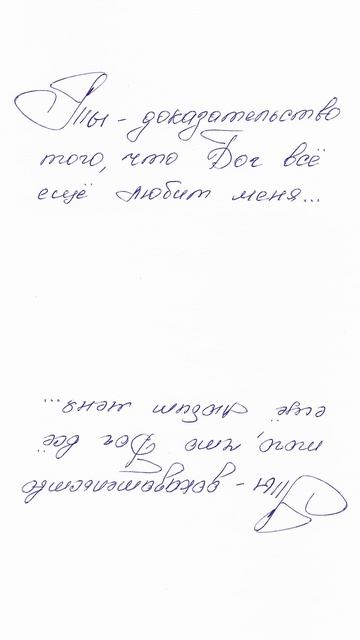 Ты - доказательство
того, что Бог всё
ещё любит меня...
Ты - доказательство
того, что Бог всё
ещё любит меня...